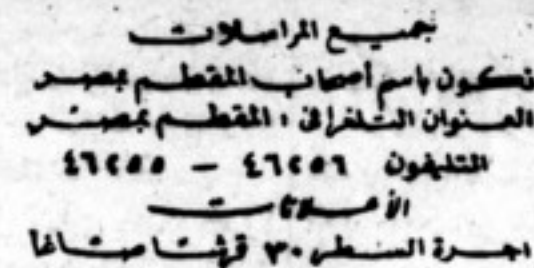 جميع المراسلات
تكون باسم أصحاب المقطم بمصر
العنوان التلغرافى : المقطم بمصر
التليفون ٤٦٢٥٦ – ٤٦٢٥٥
الأعلانات
اجرة السطر ٣٠ قرشا صاغا